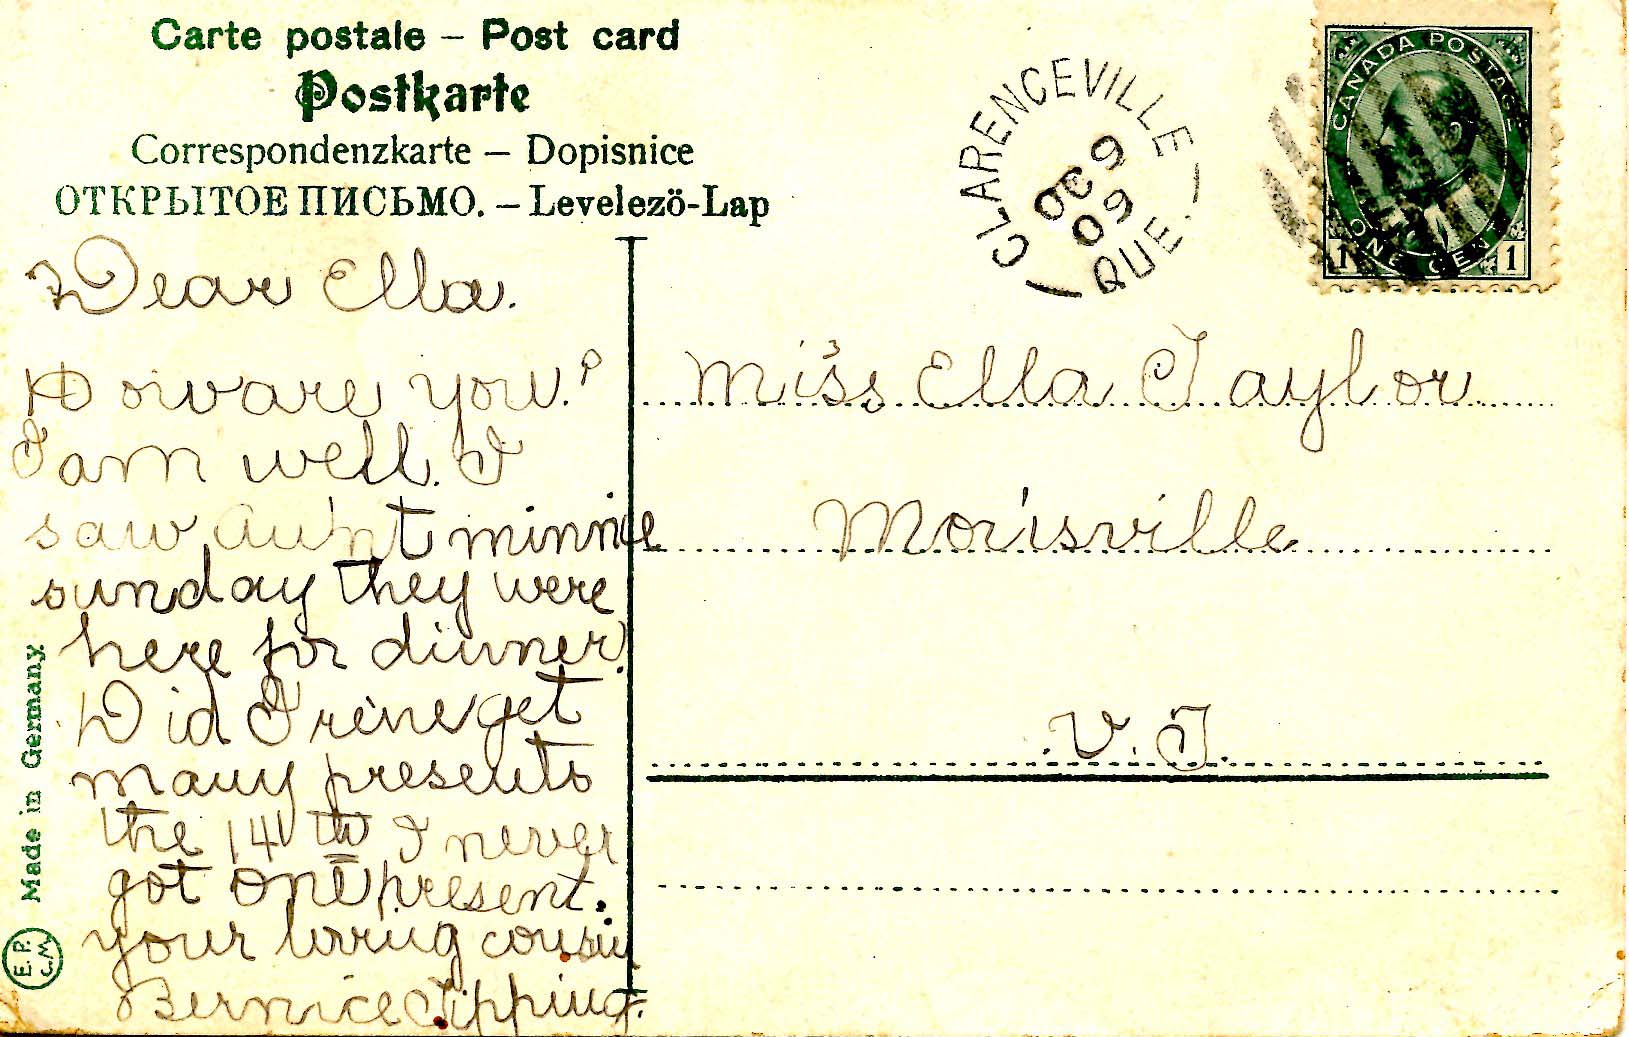 Carte postale – Post card
Postkarte
Correspondenzkarte – Dopisnice
ОТКРЫТОЕ ПИСЬМО. – Levelezö-Lap
CLARENCEVILLE
OC 9
09
QUE.
CANADA POSTAGE
ONE CENT
1 1
Dear Ella.
How are you?
I am well. I
saw aunt minnie
sunday they were
here for dinner.
Did Irene get
many presents
the 14th I never
got one present.
your loving cousin
Bernice Tipping.
Miss Ella Taylor
Morisville
V.T.
Made in Germany
E.P.
C.M.